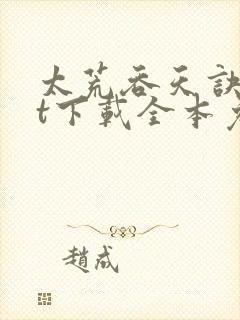 太荒吞天訣
t下載全本
趙成